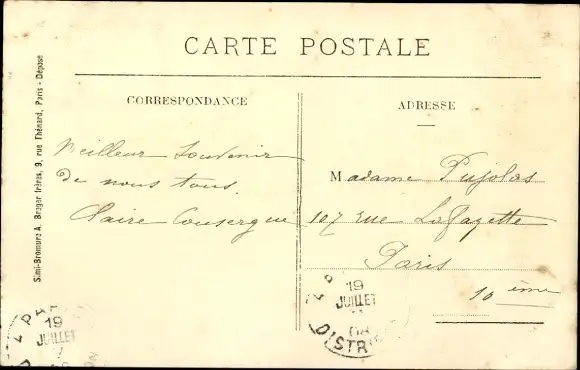 CARTE POSTALE
CORRESPONDANCE
Meilleur Souvenir
de nous tous.
Claire Cousergue
ADRESSE
Madame Pujolas
107 rue Lafayette
Paris
10 ème
19
JUILLET
08
DISTRI
19
JUILLET
Simi-Bromure A. Breger frères, 9, rue Thénard, Paris - Déposé